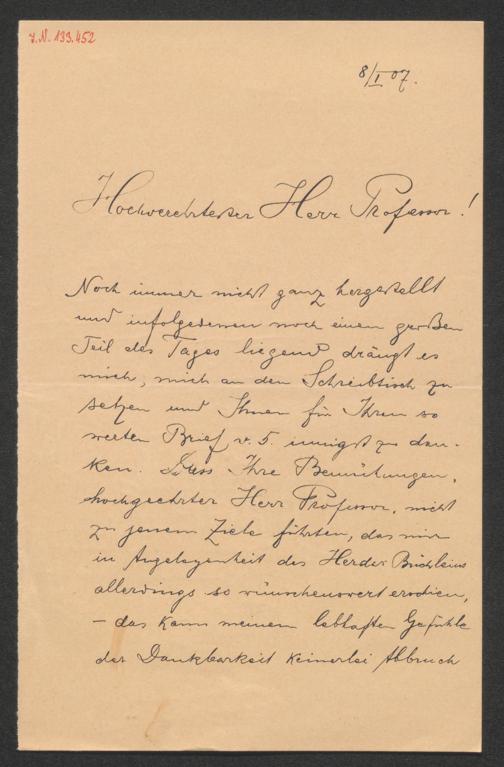 I.N. 133.452
8/I 07.
Hochverehrtester Herr Professor!
Noch immer nicht ganz hergestellt
und infolgedessen noch einen großen
Teil des Tages liegend drängt es
mich, mich an den Schreibtisch zu
setzen und Ihnen für Ihren so
werten Brief v. 5. innigst zu dan-
ken. Dass Ihre Bemühungen,
hochgeehrter Herr Professor, nicht
zu jenem Ziele führten, das mir
in Angelegenheit des Herder Büchleins
allerdings so wünschenswert erschien,
– das kann meinem lebhaften Gefühle
der Dankbarkeit keinerlei Abbruch